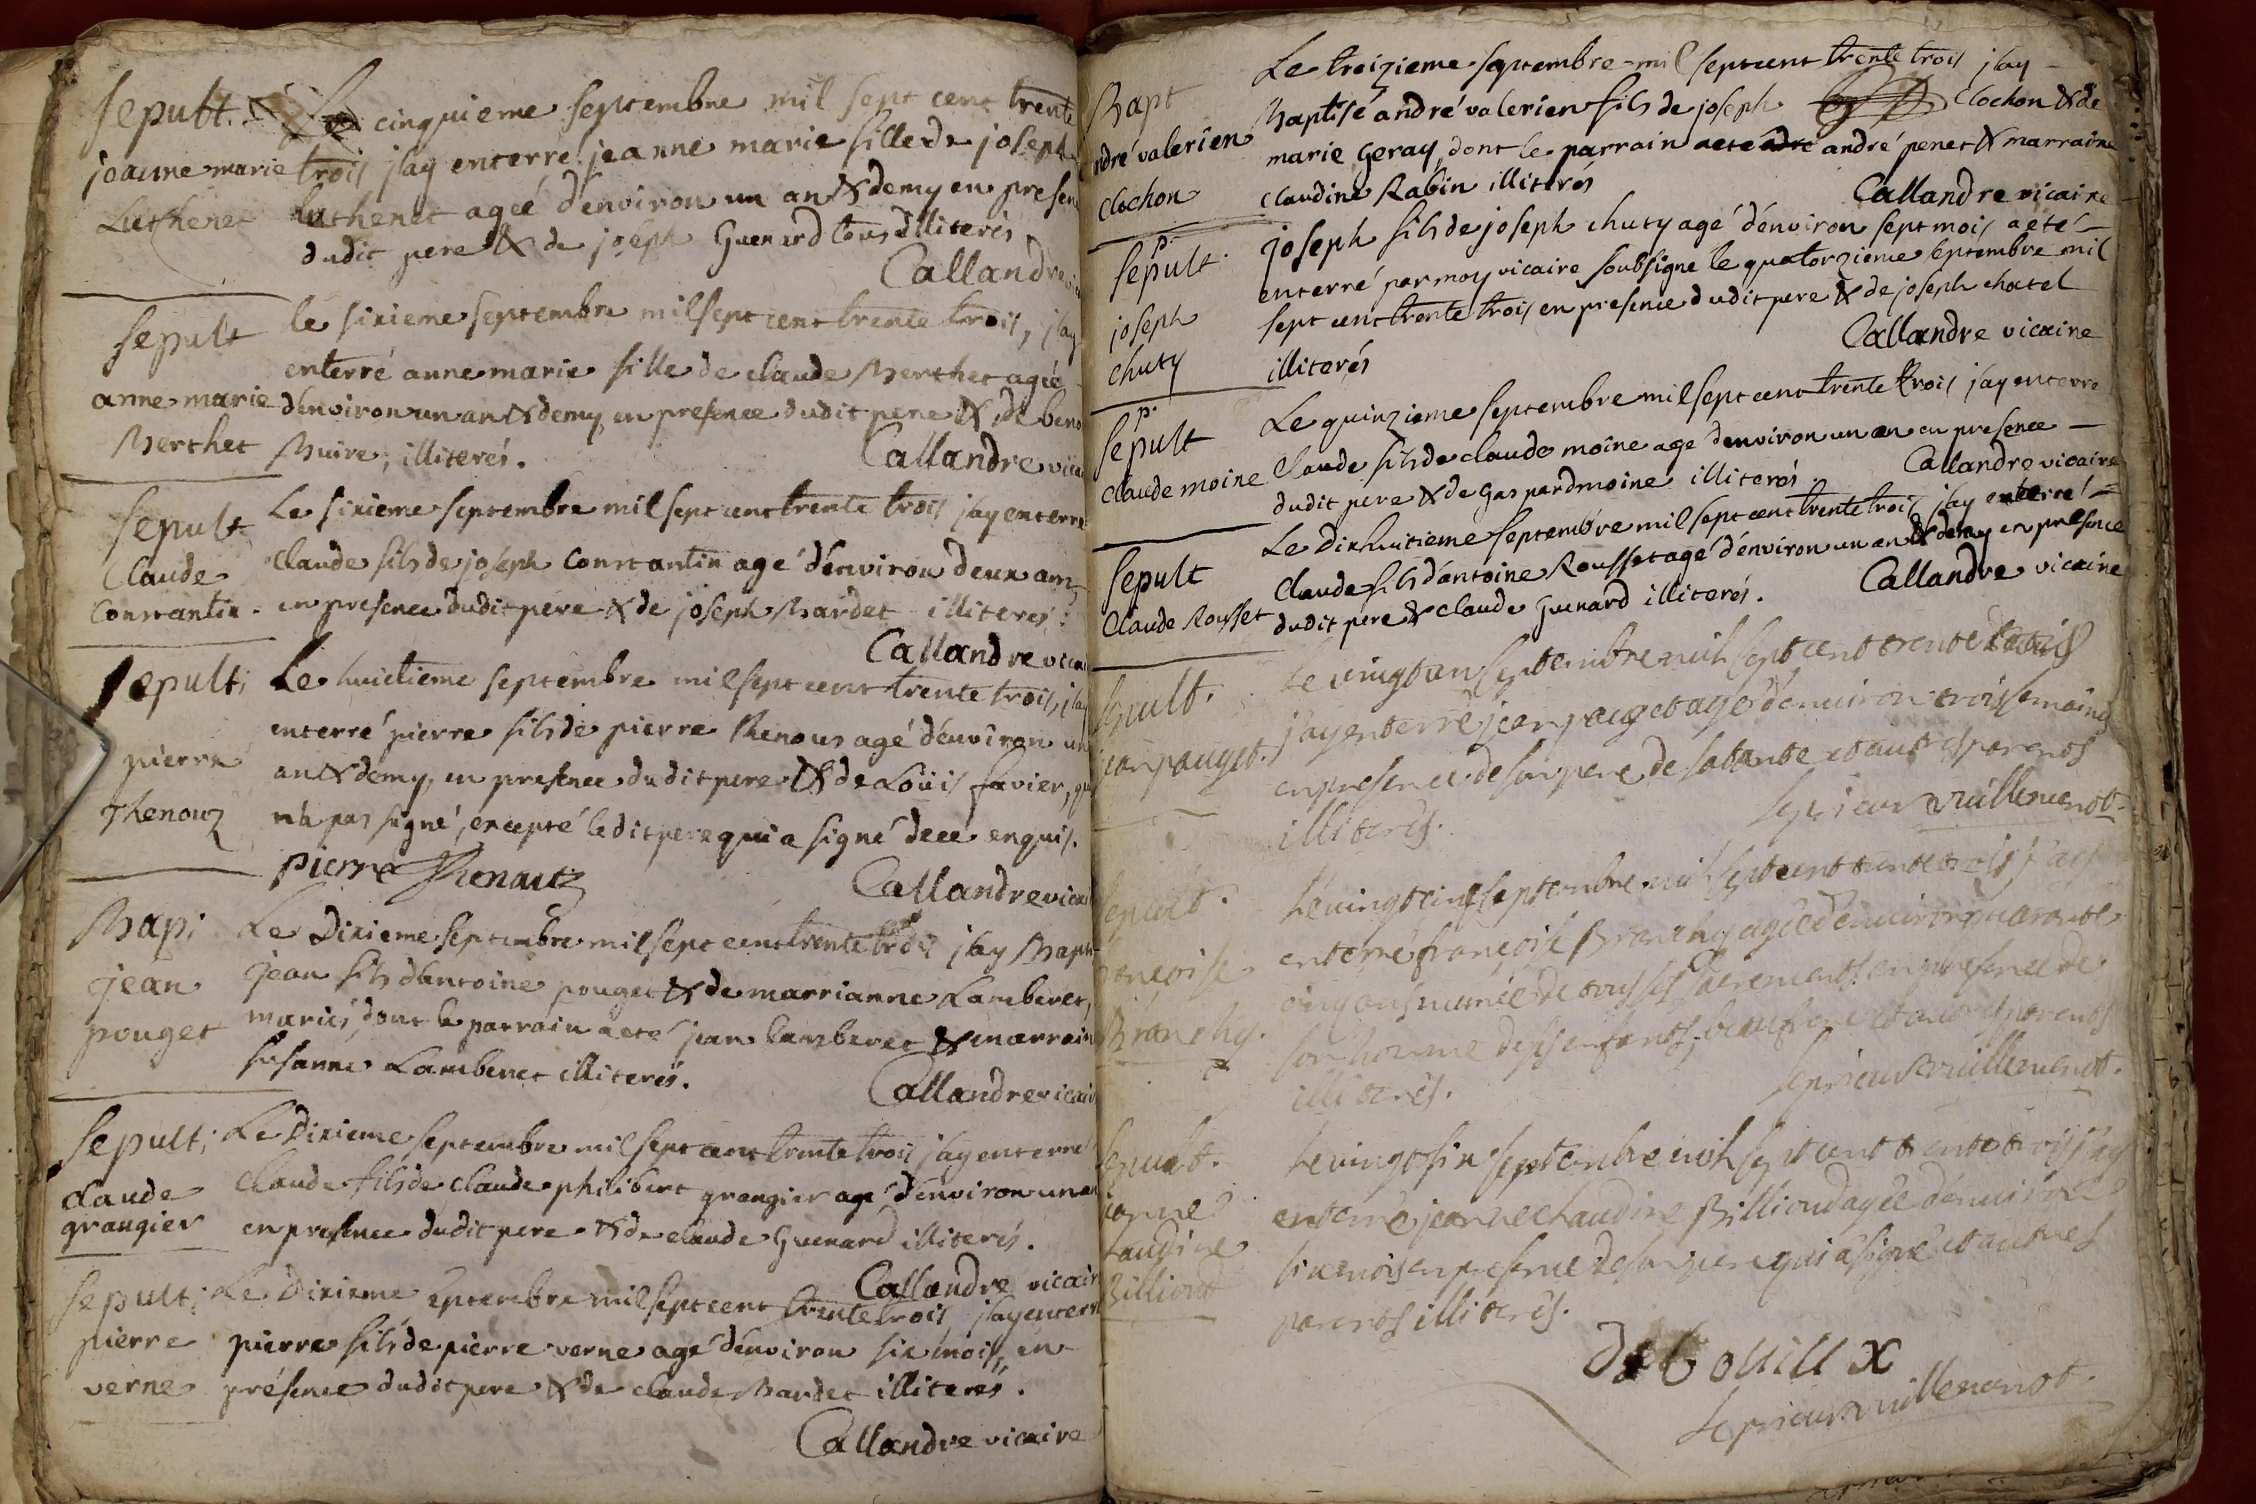 Sepult.
joanne marie
Luthenet
Le cinquieme septembre mil sept cent trente
trois j'ay enterré jeanne marie fille de joseph
luthenet ageé d'environ un an & demy en presen
dudit pere & de joseph Guenard tous illiterés
Callandre
Sepult
anne marie
Berthet
le sixieme septembre mil sept cent trente trois, j'ay
enterré anne marie fille de claude Berthet ageé
d'environ un an & demy, en presence dudit pere & de beno
Buire, illiterés.
Callandre vicai
Sepult
Claude
Constantin.
Le sixieme septembre mil sept cent trente trois j'ay enterré
Claude fils de joseph Constantin agé d'environ deux ans
en presence dudit pere & de joseph Bardet illiterés.
Callandre vicai
Sepult;
pierre
Thenouz
Le huictieme septembre mil sept cent trente trois, j'ay
enterré pierre fils de pierre Thenous agé d'environ un
an & demy, en presence dudit pere & de Loüis favier, qui
n'a pas signé, excepté ledit pere qui a signé de ce enquis.
pierre Thenautz
Callandre vicai
Bap;
jean
pouget
Le Dixieme septembre mil sept cent trente trois j'ay Bapt
jean fils d'antoine pouget & de marrianne Lamberet,
mariés, dont le parrain a eté jean Lamberet & marrain
susanne Lamberet illiterés.
Callandre vicair
Sepult;
claude
grangier
Le Dixieme septembre mil sept cent trente trois j'ay enterré
Claude fils de claude philibert grangier agé d'environ un an
en presence dudit pere & de claude Guenard illiterés.
Callandre vicair
Sepult;
pierre
verne
Le Dixieme eptembre mil sept cent trente trois j'ay enterré
pierre fils de pierre verne agé d'environ six mois, en
présence dudit pere & de claude Bardet illiterés.
Callandre vicaire
Bapt
ndré valerien
Clochon
Le treizieme septembre mil sept cent trente trois j'ay
Baptisé andré valerien fils de joseph Clochon & de
marie Geray, dont le parrain a eté andré penet & marraine
claudine Rabin illiterés
Callandre vicaire
p.
Sepult.
joseph
chuty
joseph fils de joseph chuty agé d'environ sept mois a eté
enterré par moy vicaire soubsigne le quatorzieme septembre mil
sept cent trente trois en presence dudit pere & de joseph chatel
illiterés
Callandre vicaire
p.
Sepult
Claude moine
Le quinzieme septembre mil sept cent trente trois j'ay enterré
Claude fils de claude moine age d'environ un an en presence
dudit pere & de gaspard moine illiterés.
Callandre vicaire
Sepult
Claude Rousset
Le Dixhuitieme septembre mil sept cent trente trois j'ay enterré
Claude fils d'antoine Rousset agé d'environ un an & demy en presence
dudit pere & claude Guenard illiterés.
Callandre vicaire
Sepult.
jean pouget.
Le vingt un septembre mil sept cent trente trois
j'ay enterré jean pouget agé d'environ trois semaines
en presence de son pere de sa tante et autres parents
illiterés.
le prieur vuillemenot.
Sepult.
françoise
Branchy.
Le vingt cinq septembre mil sept cent trente trois j'ay
enterré françoise Branchy agée d'environ quarante
cinq ans munie de tous ses sacrements en presence de
son homme de ses enfants, beaufrere et autres parents
illiterés.
le prieur vuillemenot.
Sepult.
jeanne
laudine
Billioud
Le vingt six septembre mil sept cent trente trois j'ay
enterré jeanne claudine Billioud agée d'environ
six mois en presence de son pere qui a signé et autres
parents illiterés.
le prieur vuillemenot.